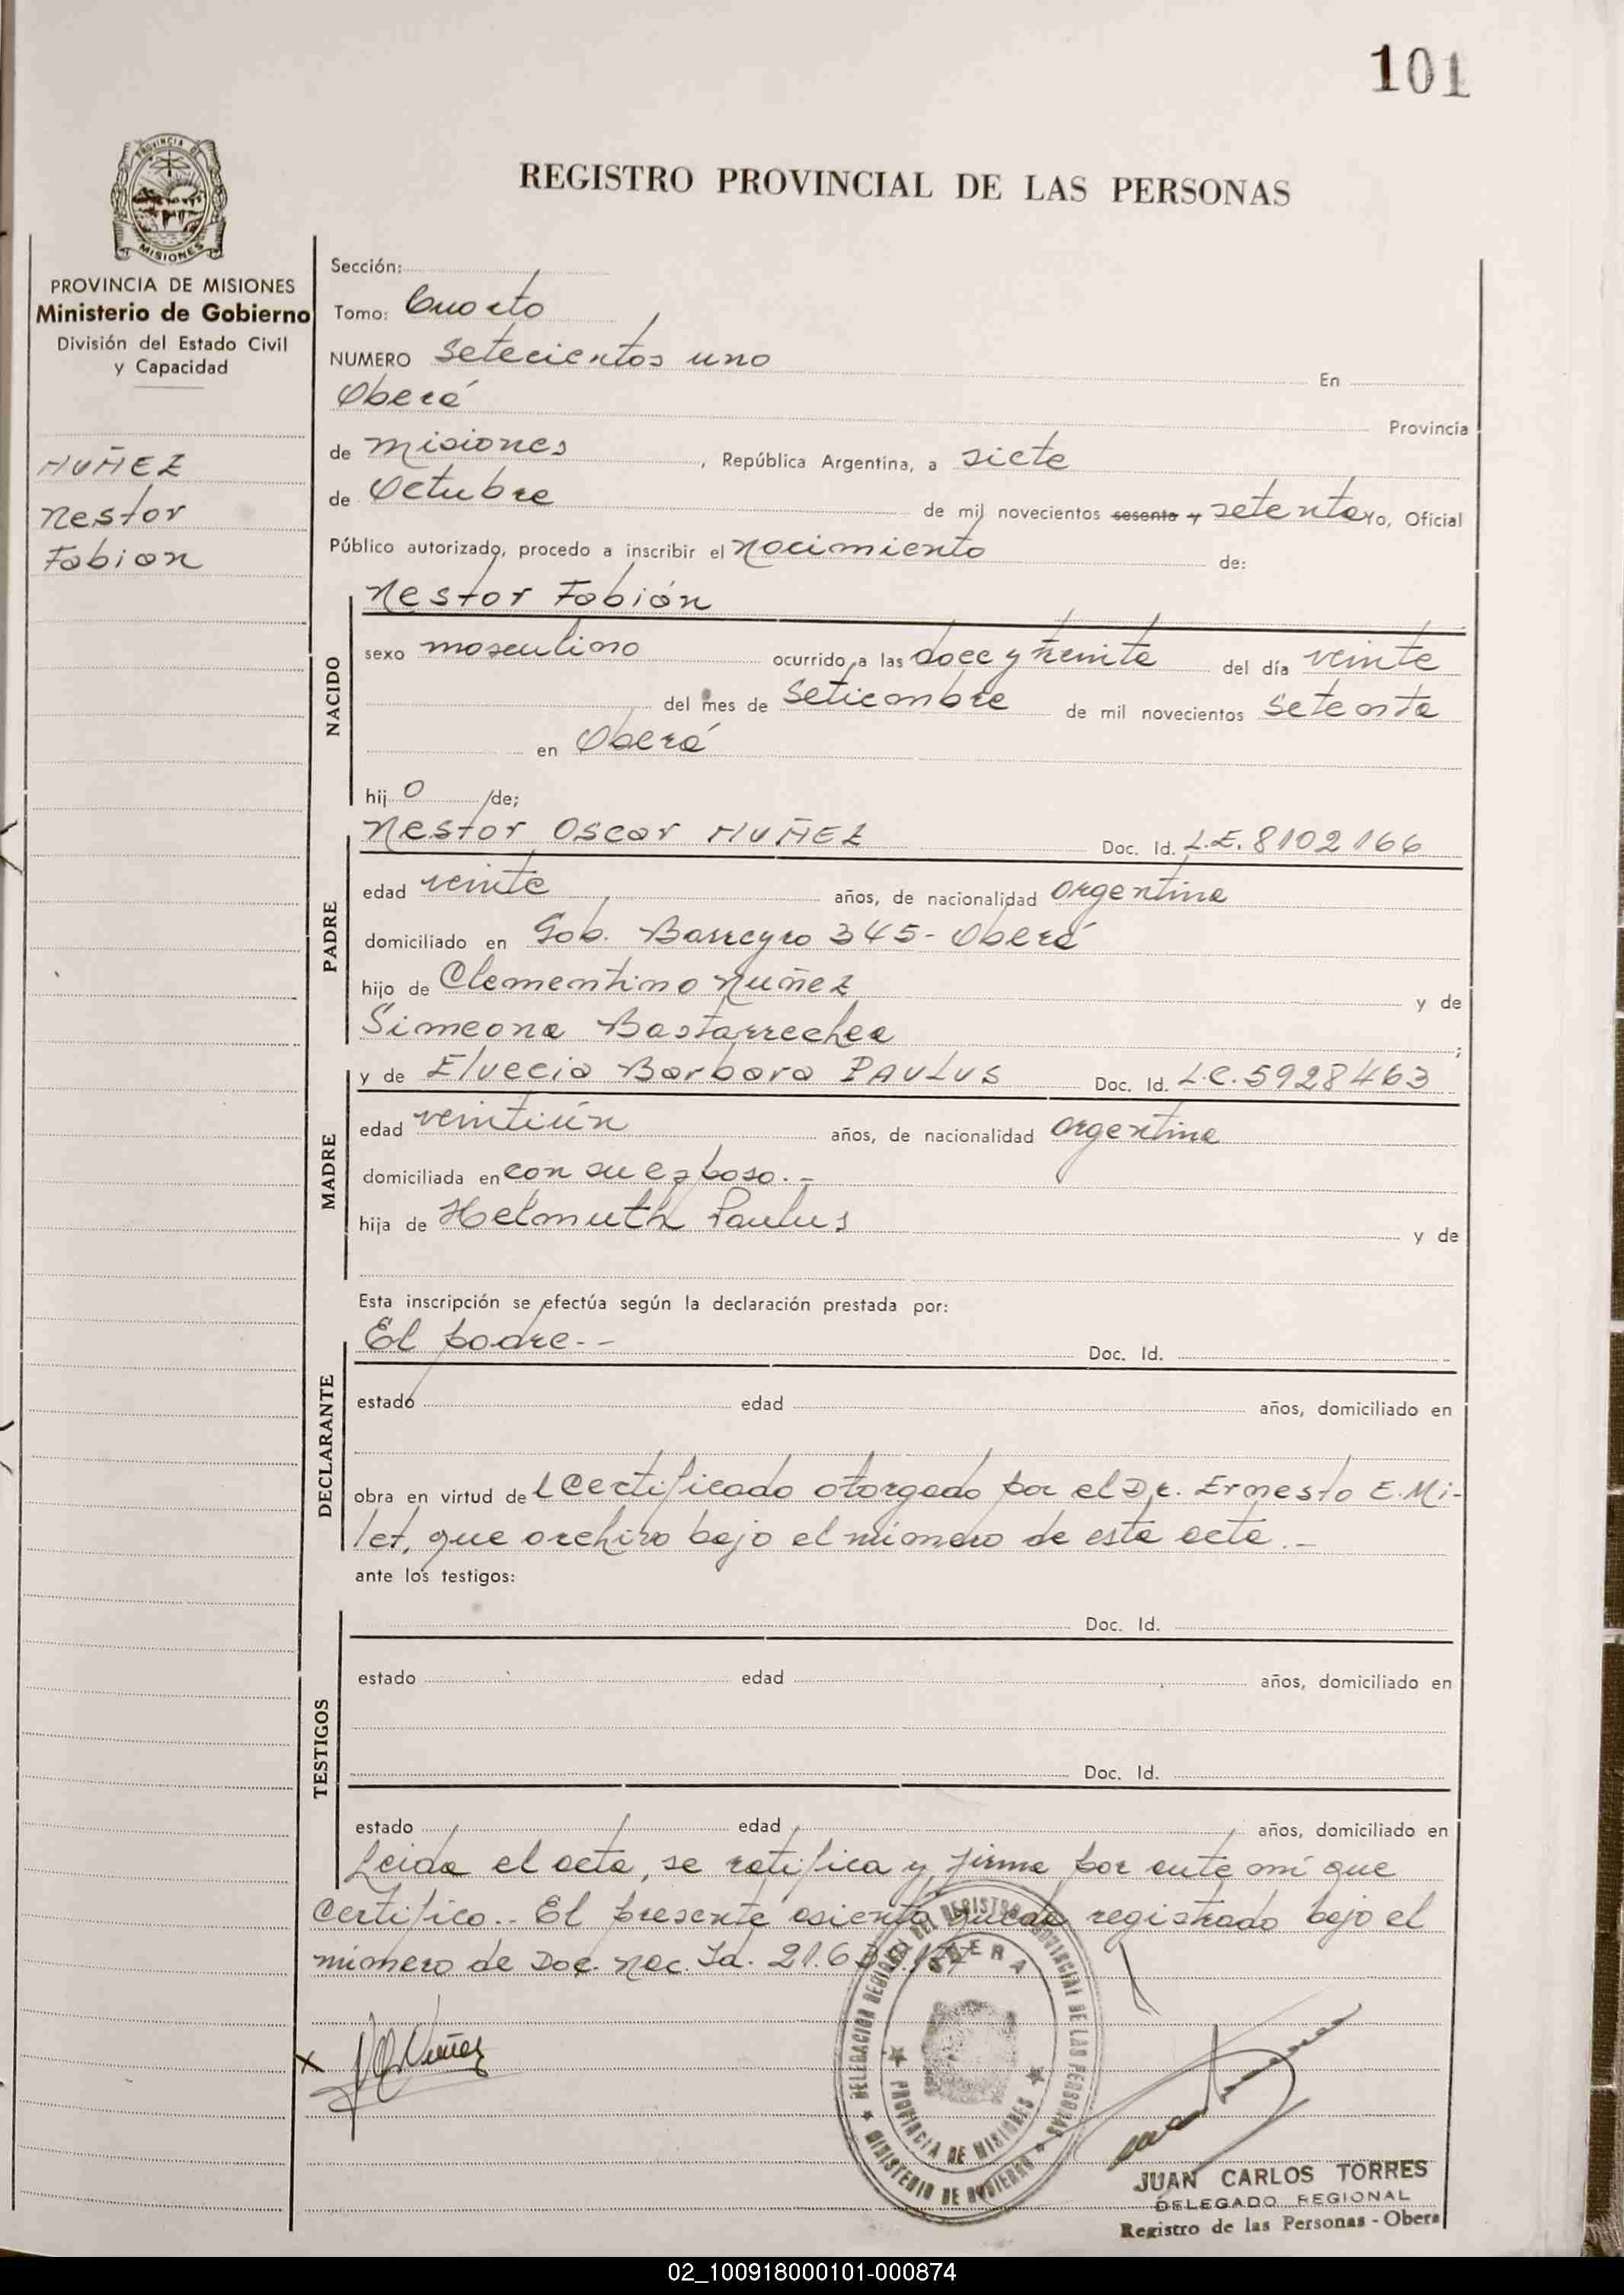 101
PROVINCIA DE
MISIONES
REGISTRO PROVINCIAL DE LAS PERSONAS
PROVINCIA DE MISIONES
Ministerio de Gobierno
División del Estado Civil
y Capacidad
NUÑEZ
Nestor
Fabian
Sección:
Tomo: Cuarto
NUMERO Setecientos uno En
Oberá Provincia
de Misiones, República Argentina, a siete
de Octubre de mil novecientos sesenta y setenta Yo, Oficial
Público autorizado, procedo a inscribir el nacimiento de:
NACIDO
Nestor Fabián
sexo masculino ocurrido a las doce y treinta del día veinte
del mes de Setiembre de mil novecientos setenta
en Oberá
hij o /de;
PADRE
Nestor Oscar NUÑEZ Doc. Id. L.E. 8102166
edad veinte años, de nacionalidad argentina
domiciliado en Gob. Barreyro 345- Oberá
hijo de Clementino Nuñez y de
Simeona Bastarrechea ;
MADRE
y de Elvecia Barbara PAULUS Doc. Id. L.C. 5928463
edad veintiún años, de nacionalidad argentina
domiciliada en con su esposo.-
hija de Helmuth Paulus y de
Esta inscripción se efectúa según la declaración prestada por:
DECLARANTE
El padre-- Doc. Id.
estado edad años, domiciliado en
obra en virtud de l Certificado otorgado por el Dr. Ernesto E. Mi-
let, que archivo bajo el número de esta acta.-
ante los testigos:
TESTIGOS
Doc. Id.
estado edad años, domiciliado en
Doc. Id.
estado edad años, domiciliado en
Leida el acta, se ratifica y firma por ante mí que
certifico.- El presente asiento queda registrado bajo el
número de Doc. Nac. Id. 21.6
DELEGACION REGIONAL DEL REGISTRO PROVINCIAL DE LAS PERSONAS
OBERA
PROVINCIA DE MISIONES
MINISTERIO DE GOBIERNO
x Nuñez
JUAN CARLOS TORRES
DELEGADO REGIONAL
Registro de las Personas - Obera
02_100918000101-000874